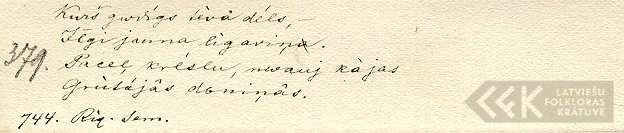 Kurš gudrīgs tēva dēls, —
Ilgi jauna līgaviņa.
379. Pacel krēslu, nwauj kājas
Grūtājās doniņās.
744. Rig. Sem.
LATVIEŠU
FOLKLORAS
KRĀTUVE